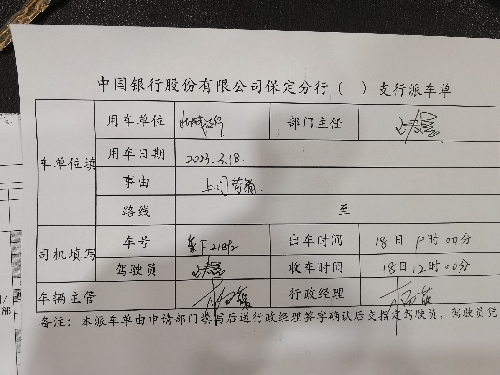 中国银行股份有限公司保定分行（ ）支行派车单
用车单位 部门主任
车单位填 用车日期 2023.2.18.
事由 上门
路线 至
司机填写 车号 出车时间 18日9时00分
驾驶员 收车时间 18日12时00分
车辆主管 行政经理
备注：本派车单由申请部门填写后送行政经理签字确认后交指定驾驶员，驾驶员凭
部